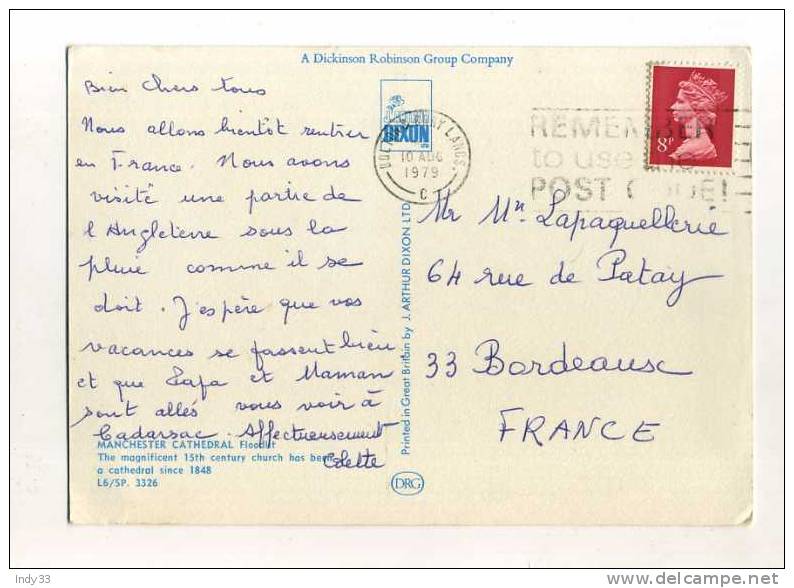 A Dickinson Robinson Group Company
Bien chers tous
Nous allons bientôt rentrer
en France. Nous avons
visité une partie de
l'Angleterre sous la
pluie comme il se
doit. J'espère que vos
vacances se passent bien
et que Papa et Maman
sont allés vous voir à
Cadarsac. Affectueusement
Colette
MANCHESTER CATHEDRAL Floodlit
The magnificent 15th century church has been
a cathedral since 1848
L6/SP. 3326
DIXON
Printed in Great Britain by J. ARTHUR DIXON LTD.
DRG
LANCS.
10 AUG
1979
C
REMEMBER
to use the
POST CODE!
8P
Mr Mn Lapaquellerie
64 rue de Patay
33 Bordeaux
FRANCE
Indy33
www.delcampe.net